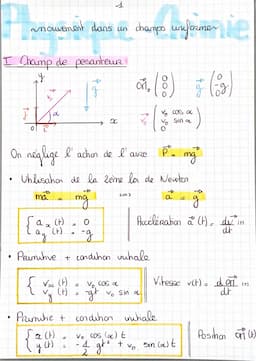 1
mouvement dans un champs uniforme
I Champ de pesanteur
y
g⃗
OM₀ (0 0 0) g⃗ (0 -g 0)
v⃗₀ (v₀ cos α v₀ sin α 0)
α
0 x
On néglige l'action de l'air P⃗ = mg⃗
• Utilisation de la 2ème loi de Newton
ma⃗ = mg⃗ a⃗ = g⃗
{ aₓ(t) = 0
a_y(t) = -g Accélération a⃗(t) = dv⃗ in dt
• Primitive + condition initiale
{ vₓ(t) = v₀ cos α
v_y(t) = -gt + v₀ sin α Vitesse v(t) = in dt
• Primitive + condition initiale
{ x(t) = v₀ cos(α)t
y(t) = -1/2 gt² + v₀ sin(α)t Position OM⃗(t)